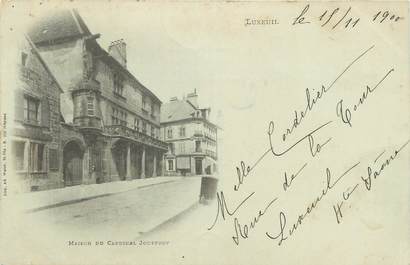 LUXEUIL
le 15/11 1900
Mlle Cordelier
Rue de la Tour
Luxeuil
Hte Saône
MAISON DU CARDINAL JOUFFROY